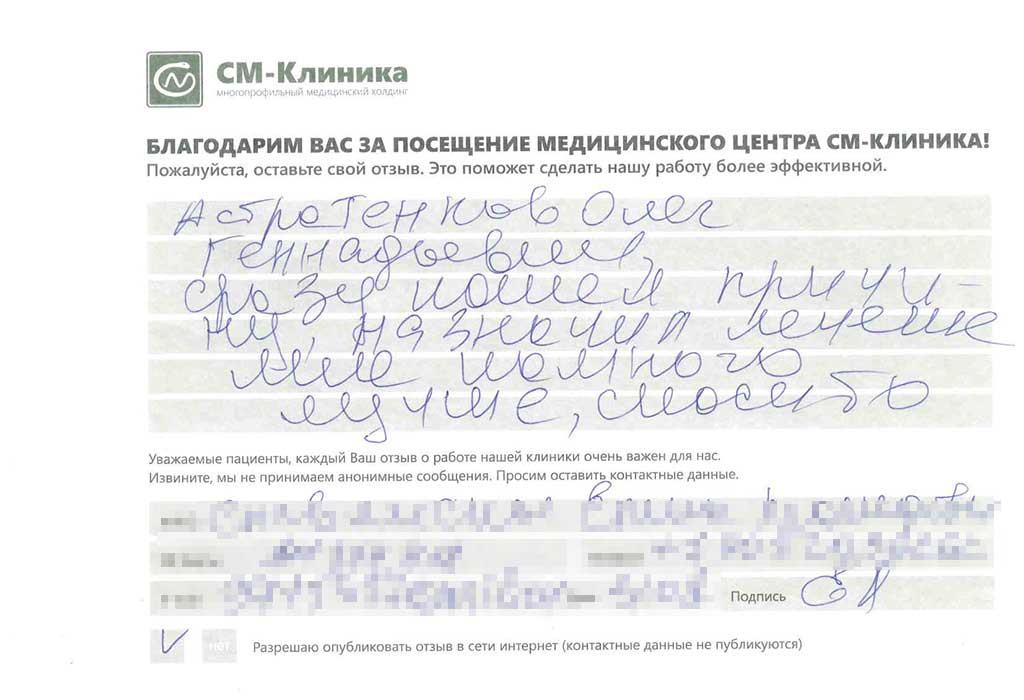 СМ-Клиника
многопрофильный медицинский холдинг
БЛАГОДАРИМ ВАС ЗА ПОСЕЩЕНИЕ МЕДИЦИНСКОГО ЦЕНТРА СМ-КЛИНИКА!
Пожалуйста, оставьте свой отзыв. Это поможет сделать нашу работу более эффективной.
Астротенков Олег
Геннадьевич,
сразу нашел причи-
ну, назначил лечение
мне намного
лучше, спасибо
Уважаемые пациенты, каждый Ваш отзыв о работе нашей клиники очень важен для нас.
Извините, мы не принимаем анонимные сообщения. Просим оставить контактные данные.
Подпись
НЕТ Разрешаю опубликовать отзыв в сети интернет (контактные данные не публикуются)